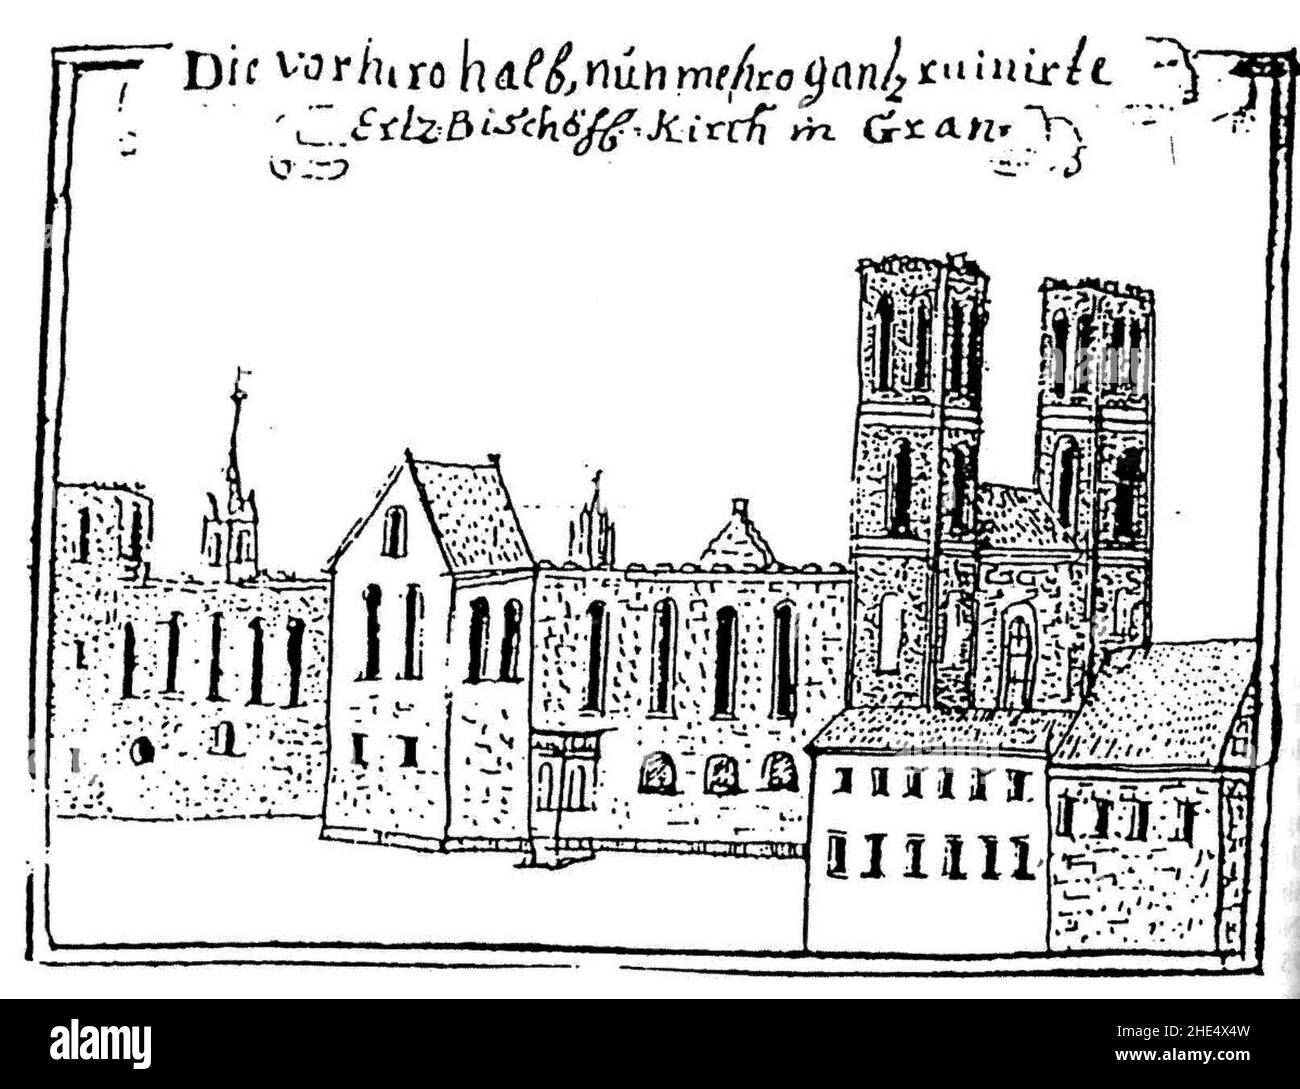 Die vorhiro halb, nún mehro gantz ruinirte
Ertz:Bischöffl: Kirch in Gran
alamy
Image ID: 2HE4X4W
www.alamy.com